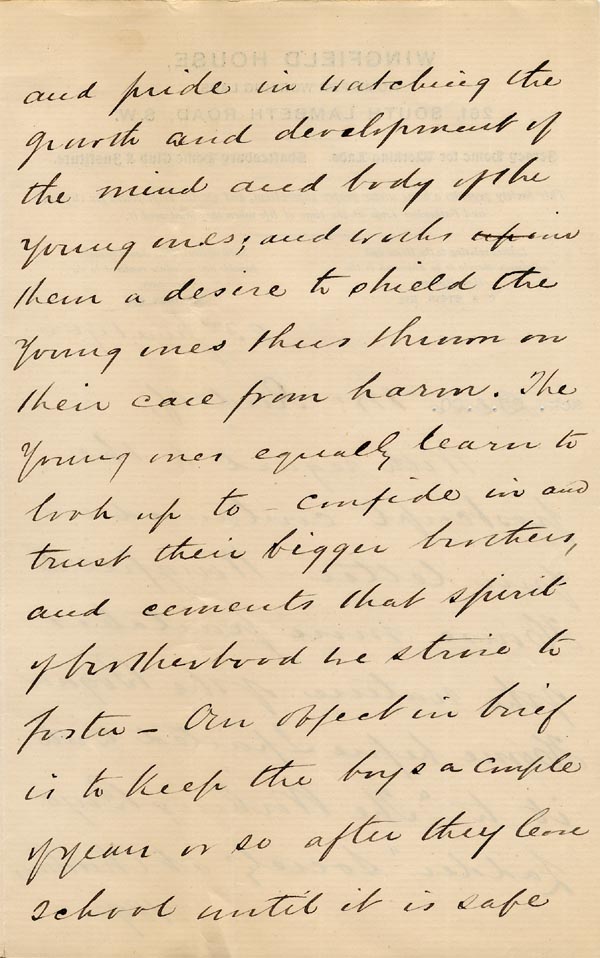 and pride in watching the
growth and development of
the mind and body of the
young ones; and works up in
them a desire to shield the
young ones thus thrown on
their care from harm. The
young ones equally learn to
look up to - confide in and
trust their bigger brothers,
and cements that spirit
of brotherhood we strive to
foster - Our object in brief
is to keep the boys a couple
of years or so after they leave
school until it is safe